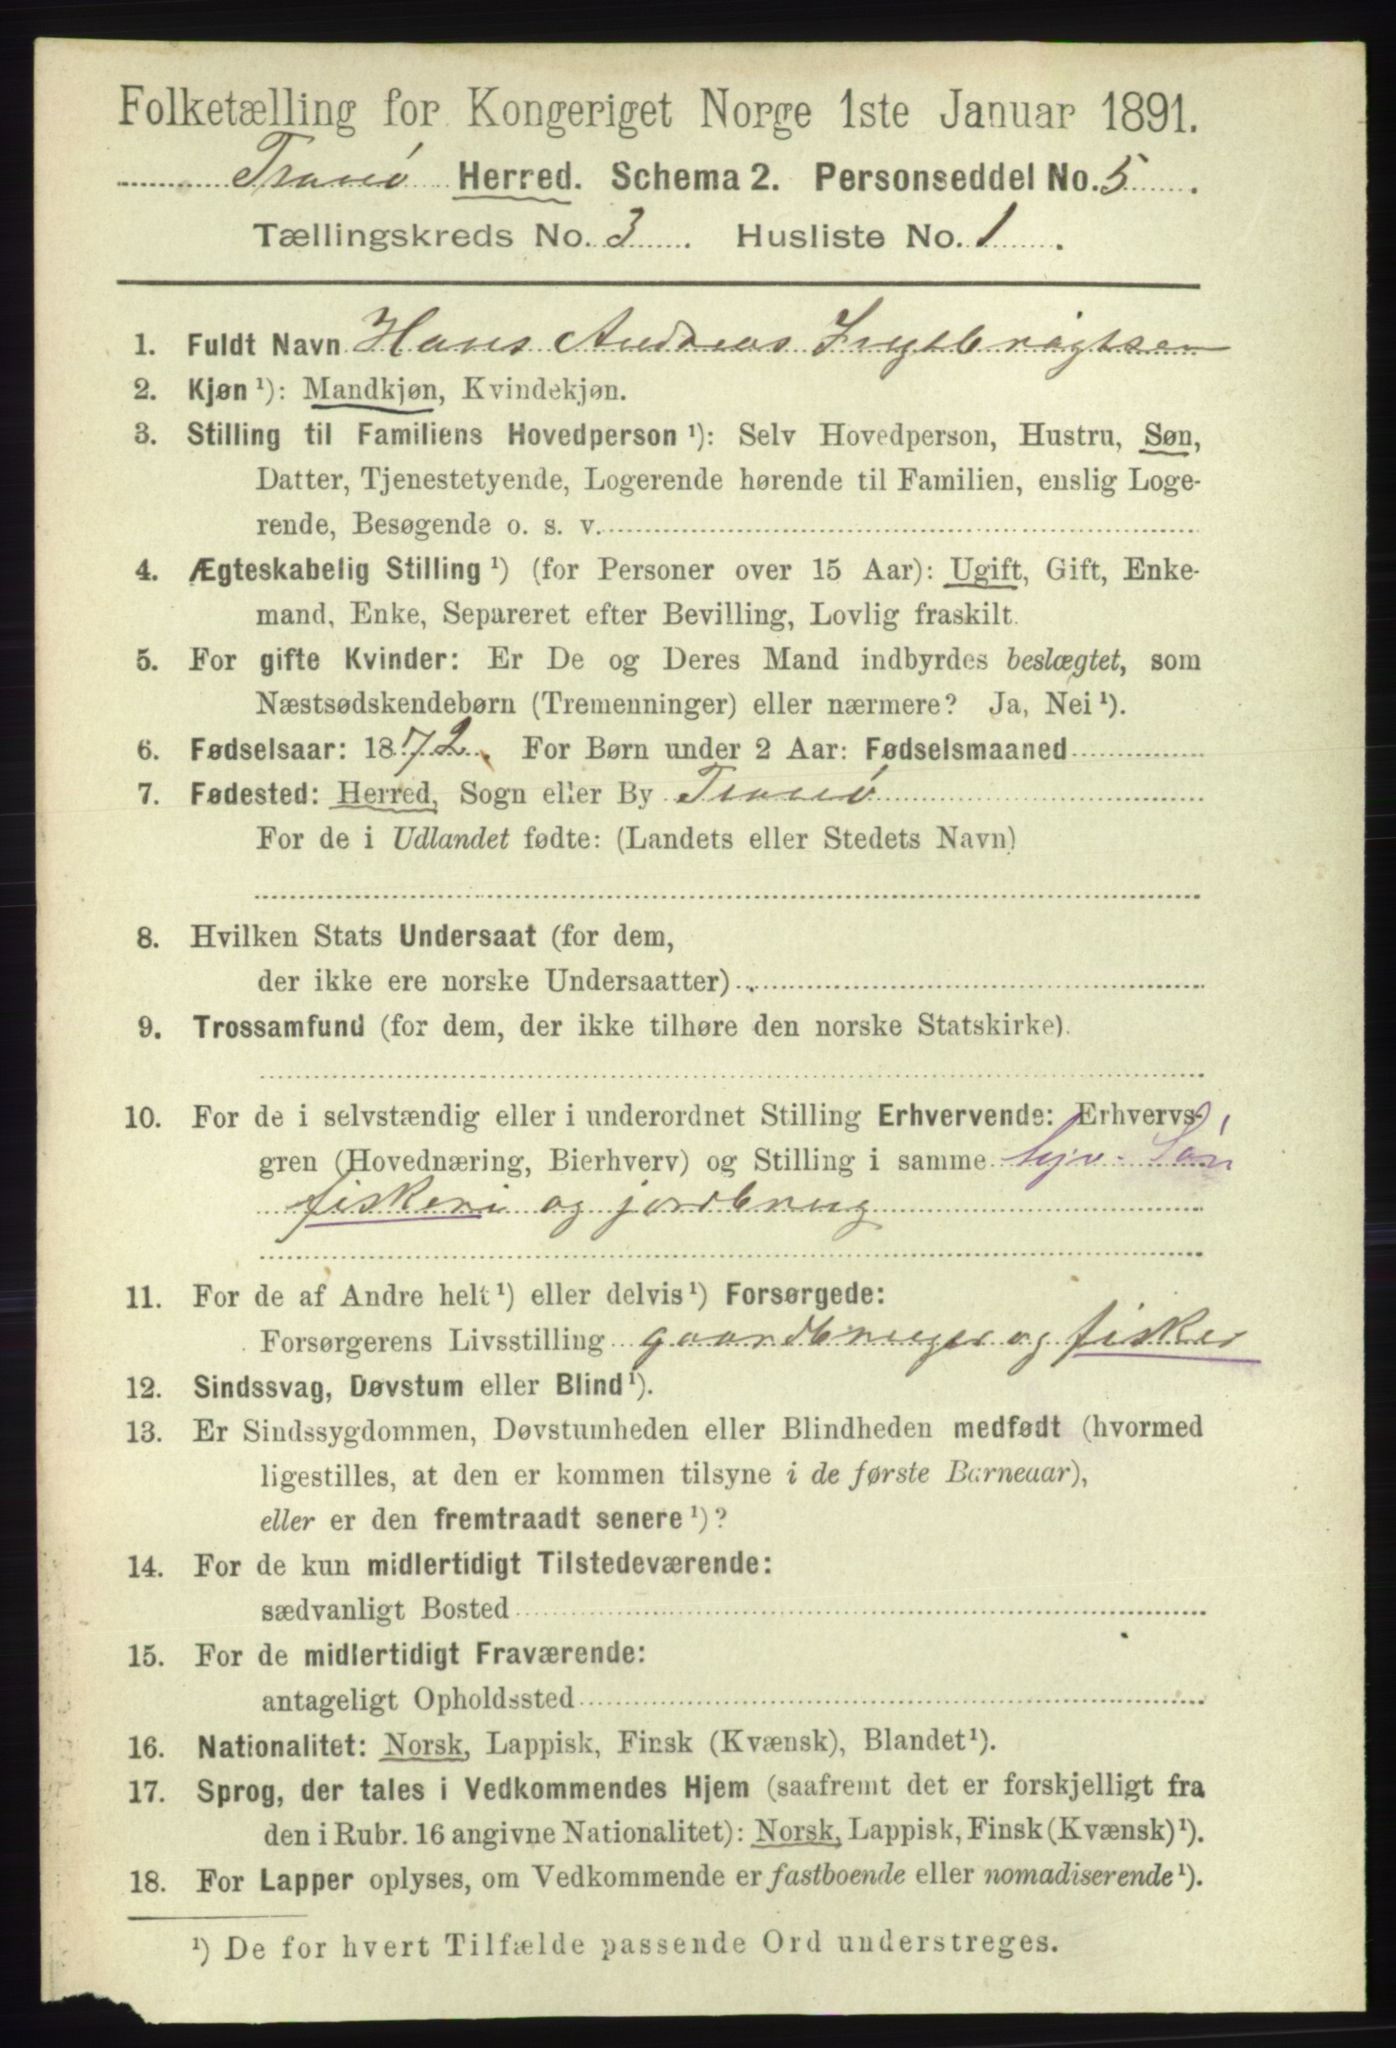 Folketælling for Kongeriget Norge 1ste Januar 1891.
Tranø Herred. Schema 2. Personseddel No. 5.
Tællingskreds No. 3. Husliste No. 1.
1. Fuldt Navn Hans Andreas Ingebrigtsen
2. Kjøn ¹): Mandkjøn, Kvindekjøn.
3. Stilling til Familiens Hovedperson ¹): Selv Hovedperson, Hustru, Søn,
Datter, Tjenestetyende, Logerende hørende til Familien, enslig Loge-
rende, Besøgende o. s. v.
4. Ægteskabelig Stilling ¹) (for Personer over 15 Aar): Ugift, Gift, Enke-
mand, Enke, Separeret efter Bevilling, Lovlig fraskilt.
5. For gifte Kvinder: Er De og Deres Mand indbyrdes beslægtet, som
Næstsødskendebørn (Tremenninger) eller nærmere? Ja, Nei ¹).
6. Fødselsaar: 1872. For Børn under 2 Aar: Fødselsmaaned
7. Fødested: Herred, Sogn eller By Tranø
For de i Udlandet fødte: (Landets eller Stedets Navn)
8. Hvilken Stats Undersaat (for dem,
der ikke ere norske Undersaatter)
9. Trossamfund (for dem, der ikke tilhøre den norske Statskirke).
10. For de i selvstændig eller i underordnet Stilling Erhvervende: Erhvervs-
gren (Hovednæring, Bierhverv) og Stilling i samme hjv. Søn
fiskeri og jordbrug
11. For de af Andre helt ¹) eller delvis ¹) Forsørgede:
Forsørgerens Livsstilling gaardbruger og fisker
12. Sindssvag, Døvstum eller Blind ¹).
13. Er Sindssygdommen, Døvstumheden eller Blindheden medfødt (hvormed
ligestilles, at den er kommen tilsyne i de første Barneaar),
eller er den fremtraadt senere ¹)?
14. For de kun midlertidigt Tilstedeværende:
sædvanligt Bosted
15. For de midlertidigt Fraværende:
antageligt Opholdssted
16. Nationalitet: Norsk, Lappisk, Finsk (Kvænsk), Blandet ¹).
17. Sprog, der tales i Vedkommendes Hjem (saafremt det er forskjelligt fra
den i Rubr. 16 angivne Nationalitet): Norsk, Lappisk, Finsk (Kvænsk) ¹).
18. For Lapper oplyses, om Vedkommende er fastboende eller nomadiserende ¹).
¹) De for hvert Tilfælde passende Ord understreges.